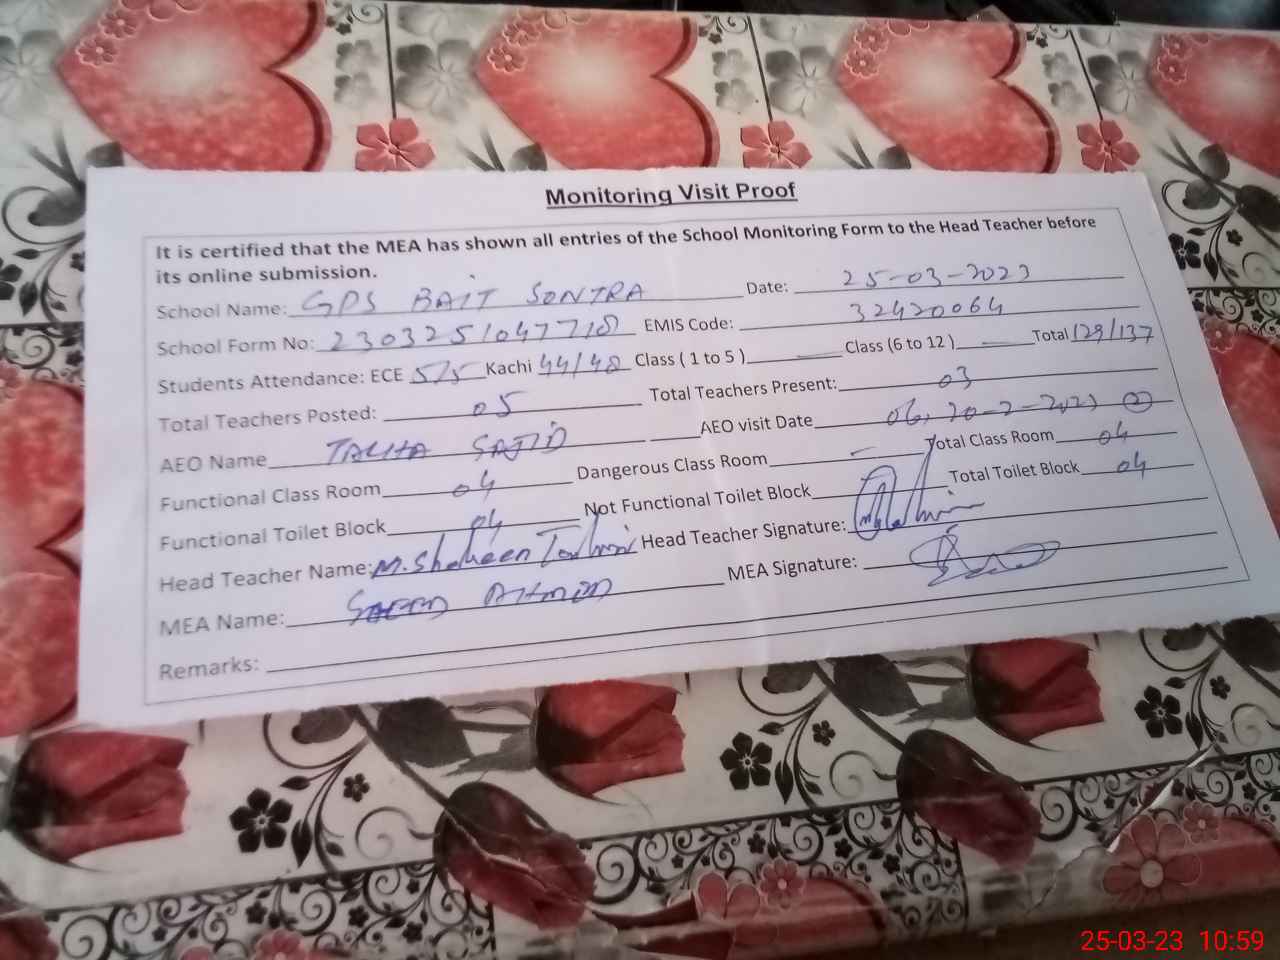 Monitoring Visit Proof
It is certified that the MEA has shown all entries of the School Monitoring Form to the Head Teacher before
its online submission.
School Name: GPS BAIT SONTRA Date: 25-03-2023
School Form No: 2303251047718 EMIS Code: 32420064
Students Attendance: ECE 5/5 Kachi 44/48 Class ( 1 to 5 ) Class (6 to 12 ) Total 129/137
Total Teachers Posted: 05 Total Teachers Present: 03
AEO Name TALHA SAJID AEO visit Date 06, 20-2-2023 2
Functional Class Room 04 Dangerous Class Room - Total Class Room 04
Functional Toilet Block 04 Not Functional Toilet Block Total Toilet Block 04
Head Teacher Name: M. Shaheen Head Teacher Signature:
MEA Name: Ahmad MEA Signature:
Remarks:
25-03-23 10:59